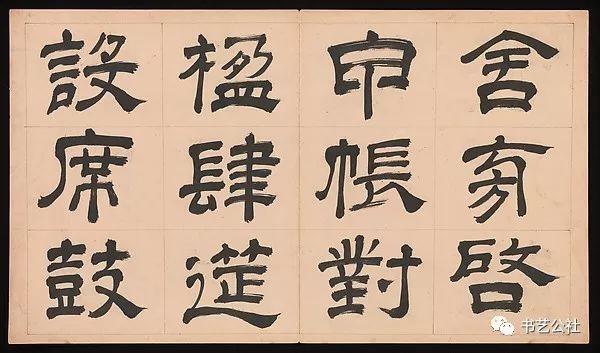 舍旁啓
甲帳對
楹肆筵
設席鼓
书艺公社